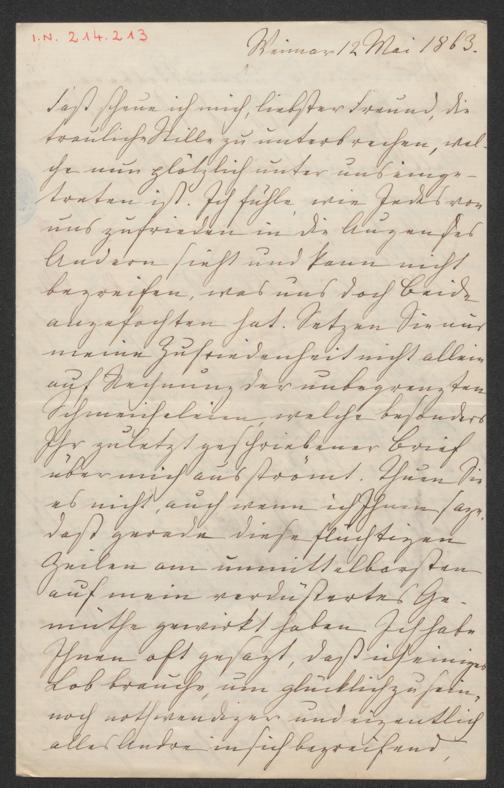 I.N. 214.213
Weimar 12 Mai 1863.
Fast scheue ich mich, liebster Freund, die
trauliche Stille zu unterbrechen, wel-
che nun plötzlich unter uns einge-
treten ist. Ich fühle, wie Jedes von
uns zufrieden in die Augen des
Andern sieht und kann nicht
begreifen, was uns doch beide
angefochten hat. Setzen Sie nur
meine Zufriedenheit nicht allein
auf Rechnung der unbegrenzten
Schmeicheleien, welche besonders
Ihr zuletzt geschriebener Brief
über mich ausströmt. Thuen Sie
es nicht, auch wenn ich Ihnen sage,
daß gerade diese flüchtigen
Zeilen am unmittelbarsten
auf mein verdüstertes Ge-
müthe gewirkt haben. Ich habe
Ihnen oft gesagt, daß ich einiges
Lob brauche, um glücklich zu sein,
noch nothwendiger und eigentlich
alles Andre in sich begreifend,